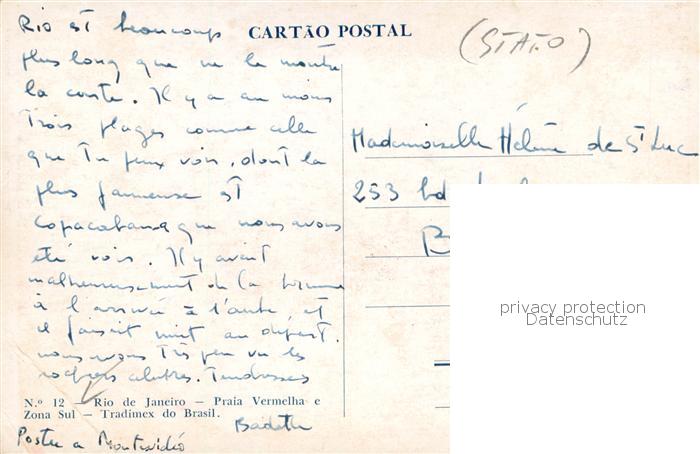 CARTÃO POSTAL
(STATO)
Rio est beaucoup
plus long que ne le montre
la carte. Il y a au moins
trois plages comme celle
que tu peux voir, dont la
plus fameuse est
Copacabana que nous avons
été voir. Il y avait
malheureusement de la brume
à l'arrivée à l'aube, et
il faisait nuit au départ.
nous avons très peu vu les
rochers célèbres. Tendresses
Mademoiselle Hélène de St Luc
253 bd
B
N.º 12 — Rio de Janeiro — Praia Vermelha e
Zona Sul — Tradimex do Brasil.
Postée a Montevidéo
privacy protection
Datenschutz